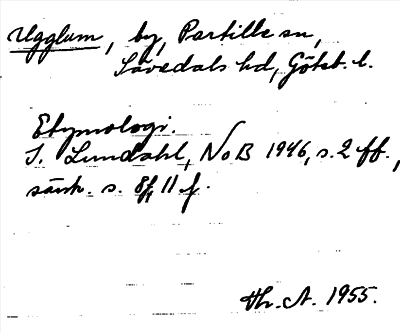 Ugglum, by, Partille sn,
Sävedals hd, Göteb. l.
Etymologi.
I. Lundahl, NoB 1946, s. 2 ff.,
särsk. s. 8 f, 11 f.
Th. A. 1955.